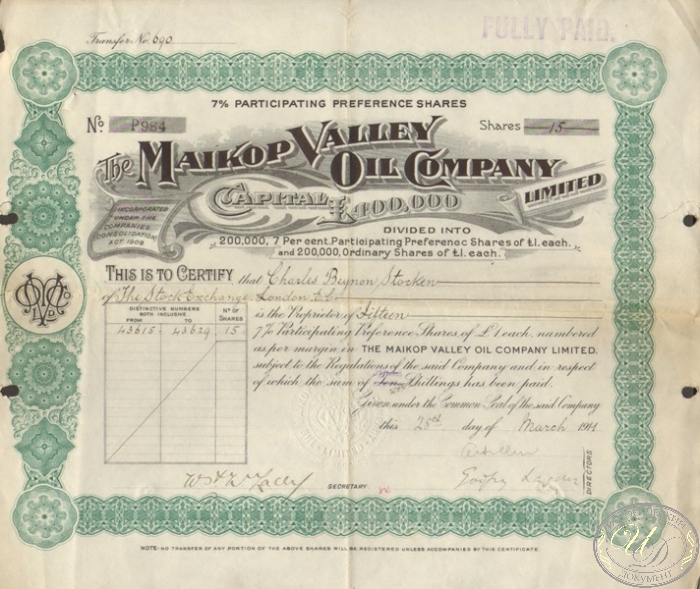 Transfer No. 690
FULLY PAID.
7% PARTICIPATING PREFERENCE SHARES
No P984
Shares 15
The MAIKOP VALLEY
OIL COMPANY
LIMITED
CAPITAL £400,000
INCORPORATED
UNDER THE
COMPANIES
CONSOLIDATION
ACT 1908
DIVIDED INTO
200,000, 7 Per cent. Participating Preference Shares of £1. each.
and 200,000, Ordinary Shares of £1. each.
THIS IS TO CERTIFY, that Charles Beynon Stocken
of The Stock Exchange, London E.C.
is the Proprietor of Fifteen
7% Participating Preference Shares of £1 each, numbered
as per margin in THE MAIKOP VALLEY OIL COMPANY LIMITED,
subject to the Regulations of the said Company and in respect
of which the sum of Ten Shillings has been paid.
DISTINCTIVE NUMBERS
BOTH INCLUSIVE.
FROM TO
No OF
SHARES
43615 - 43629 15
Given under the Common Seal of the said Company
this 28th day of March 1911
DIRECTORS
SECRETARY
NOTE:-NO TRANSFER OF ANY PORTION OF THE ABOVE SHARES WILL BE REGISTERED UNLESS ACCOMPANIED BY THIS CERTIFICATE.
ДОКУМЕНТ